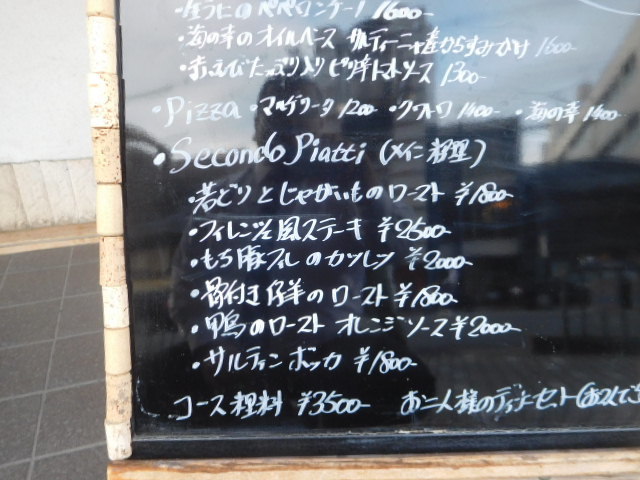 ・生うにのペペロンチーノ 1600-
・海の幸のオイルベース サルディーニャ産からすみかけ 1600-
・赤えびたっぷり入りピリ辛トマトソース 1300-
・Pizza ・マルゲリータ 1200 ・クアトロ 1400- ・海の幸 1400-
・Secondo Piatti (メイン料理)
・若どりとじゃがいものロースト ¥1800-
・フィレンツェ風ステーキ ¥2500-
・もち豚フィレのカツレツ ¥2000-
・骨付き仔羊のロースト ¥1800-
・鴨のロースト オレンジソース ¥2000-
・サルティンボッカ ¥1800-
コース料理 ¥3500- お二人様のディナーセット